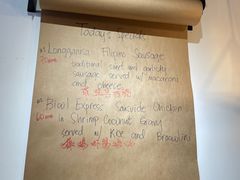 Today's specials
Longganisa Filipino Sausage
traditional sweet and garlicky
sausage served w/ macaroni
and cheese
Bicol Express Sousvide Chicken
in Shrimp Coconut Gravy
served w/ Rice and Broccolini